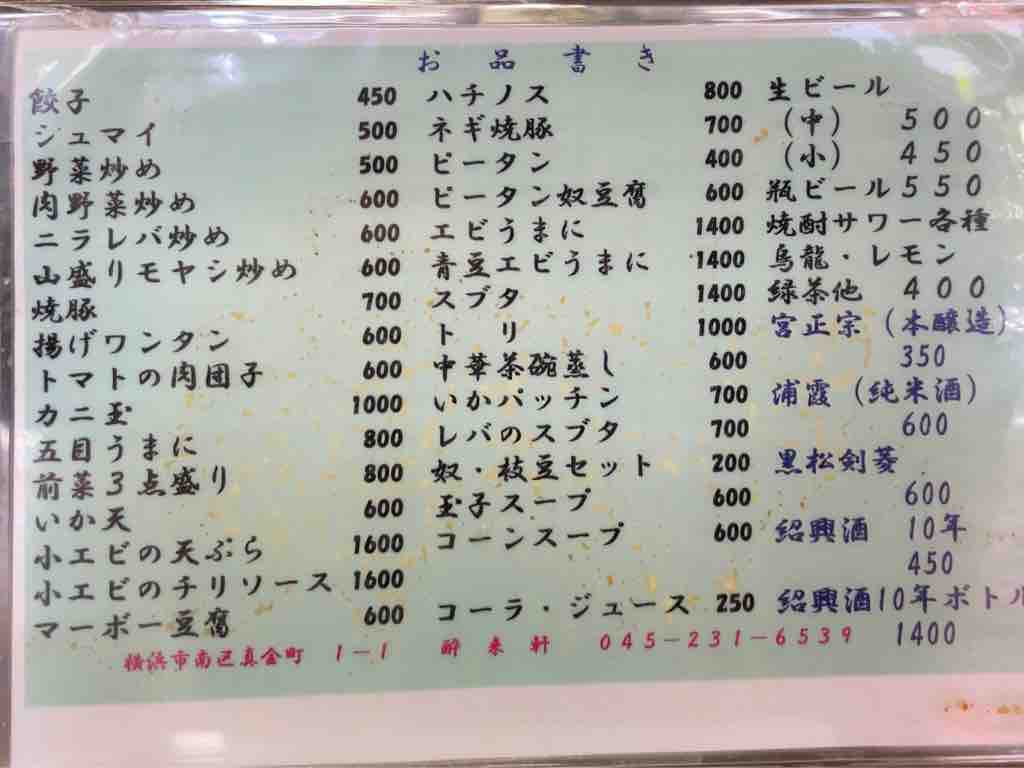 お品書き
餃子 450
シュマイ 500
野菜炒め 500
肉野菜炒め 600
ニラレバ炒め 600
山盛りモヤシ炒め 600
焼豚 700
揚げワンタン 600
トマトの肉団子 600
カニ玉 1000
五目うまに 800
前菜3点盛り 800
いか天 600
小エビの天ぷら 1600
小エビのチリソース 1600
マーボー豆腐 600
ハチノス 800
ネギ焼豚 700
ピータン 400
ピータン奴豆腐 600
エビうまに 1400
青豆エビうまに 1400
スブタ 1400
トリ 1000
中華茶碗蒸し 600
いかパッチン 700
レバのスブタ 700
奴・枝豆セット 200
玉子スープ 600
コーンスープ 600
コーラ・ジュース 250
生ビール
(中) 500
(小) 450
瓶ビール 550
焼酎サワー各種
烏龍・レモン
緑茶他 400
宮正宗(本醸造)
350
浦霞(純米酒)
600
黒松剣菱
600
紹興酒 10年
450
紹興酒10年ボトル
1400
横浜市南区真金町 1-1 酔来軒 045-231-6539